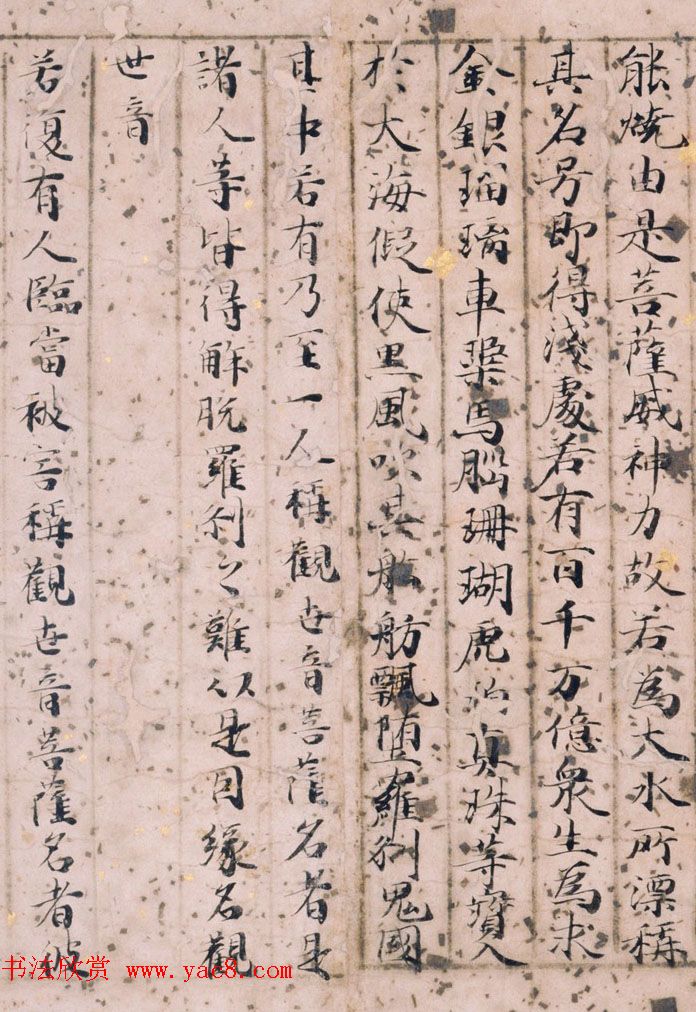 能燒由是菩薩威神力故若為大水所漂稱
其名号即得淺處若有百千万億衆生為求
金銀瑠璃車璖馬腦珊瑚虎珀真珠等寶入
於大海假使黒風吹其舩舫飄堕羅刹鬼國
其中若有乃至一人稱觀世音菩薩名者是
諸人等皆得解脱羅刹之難以是因緣名觀
世音
若復有人臨當被害稱觀世音菩薩名者彼
书法欣赏 www.yac8.com